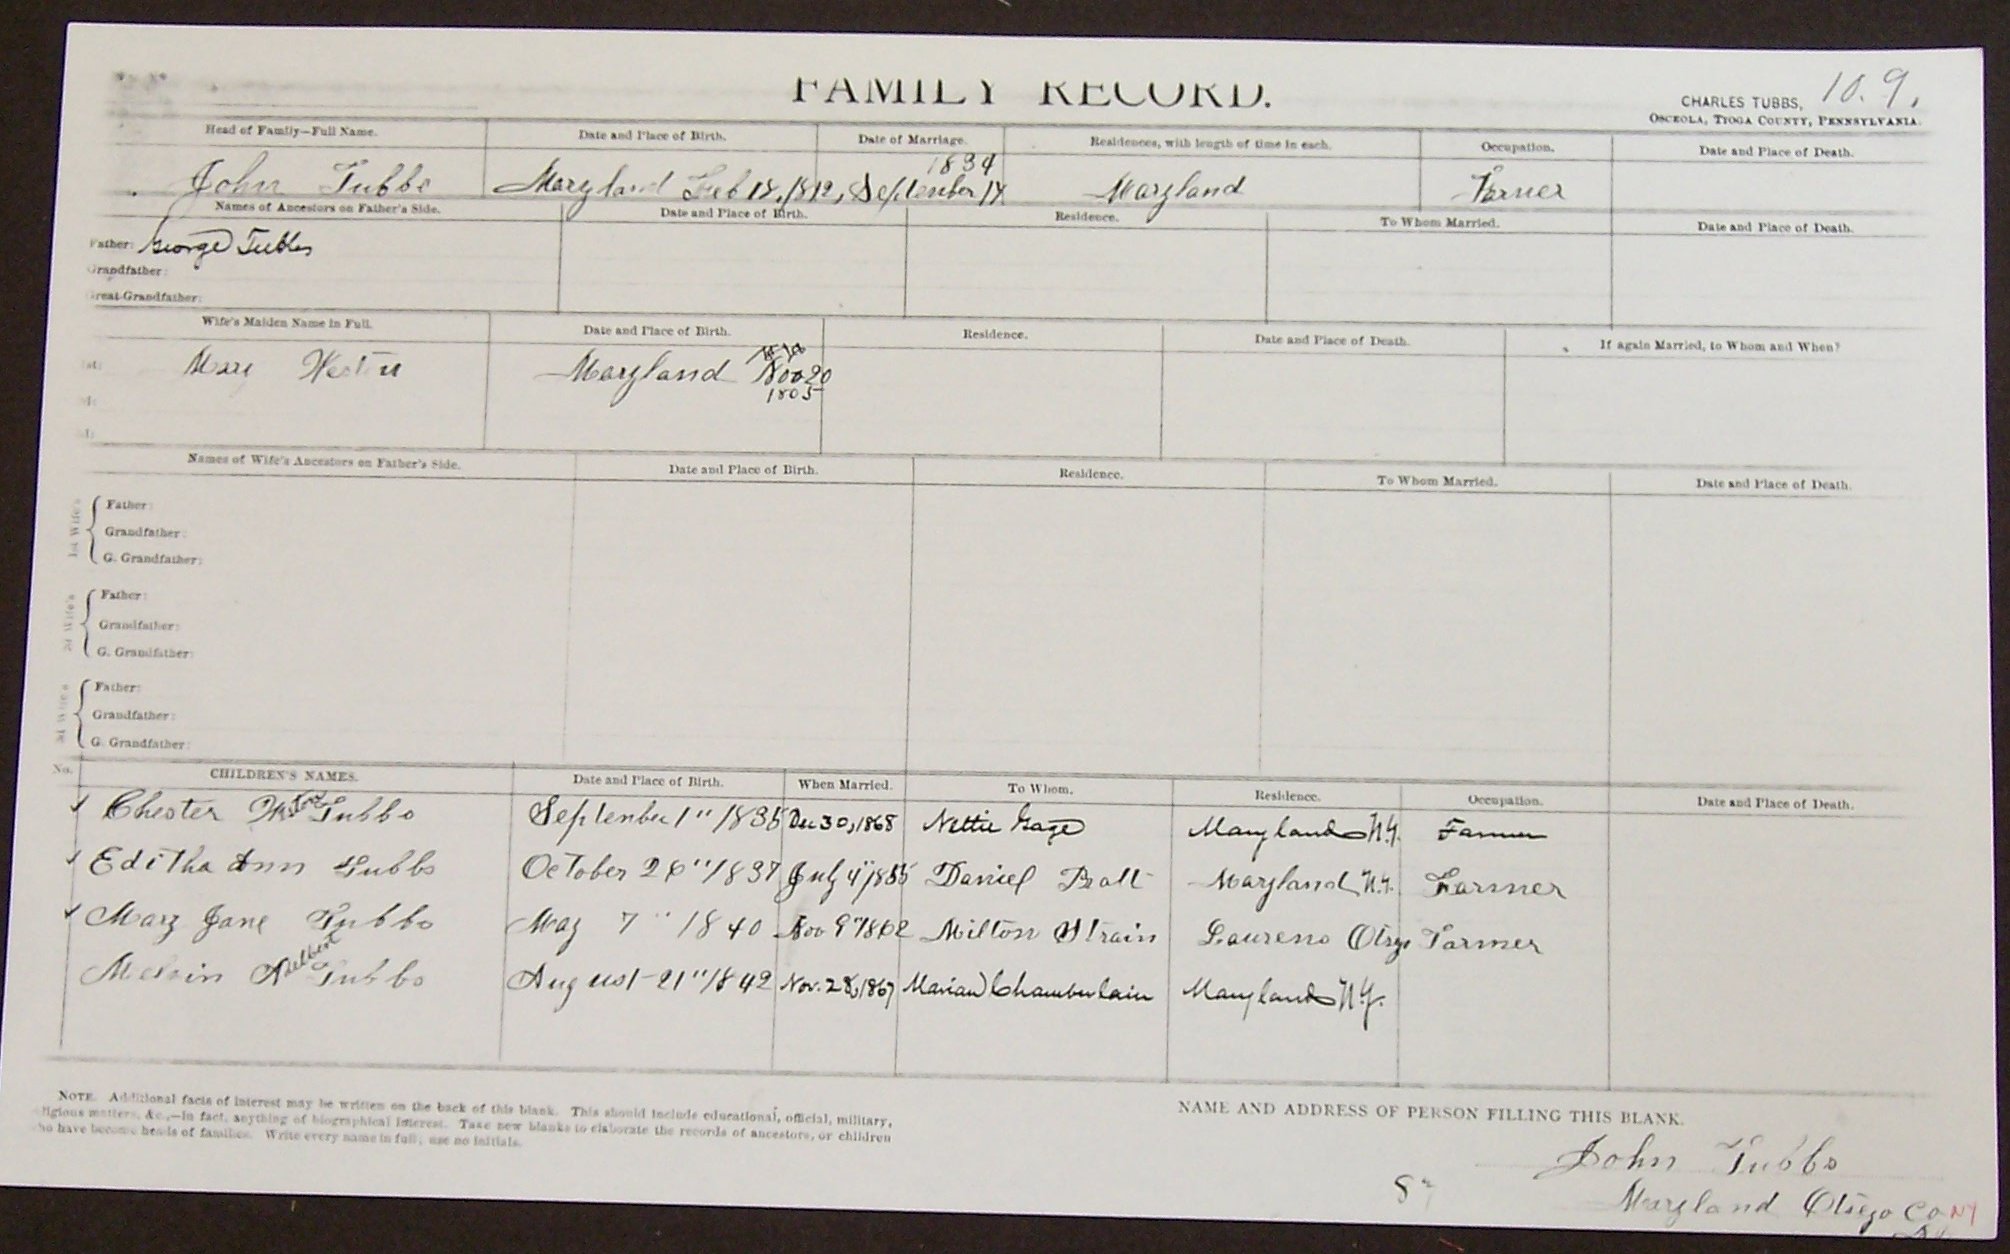 FAMILY RECORD.
10. 9.
CHARLES TUBBS,
OSCEOLA, TIOGA COUNTY, PENNSYLVANIA.
Head of Family—Full Name. Date and Place of Birth. Date of Marriage. Residences, with length of time in each. Occupation. Date and Place of Death.
1834
John Tubbs Maryland Feb 18, 1812, September Maryland Farmer
Names of Ancestors on Father's Side. Date and Place of Birth. Residence. To Whom Married. Date and Place of Death.
Father: George Tubbs
Grandfather:
Great-Grandfather:
Wife's Maiden Name in Full. Date and Place of Birth. Residence. Date and Place of Death. If again Married, to Whom and When?
1st: Mary Maryland Nov 20
1805
Names of Wife's Ancestors on Father's Side. Date and Place of Birth. Residence. To Whom Married. Date and Place of Death.
1st Wife's
Father:
Grandfather:
G. Grandfather:
2d Wife's
Father:
Grandfather:
G. Grandfather:
3d Wife's
Father:
Grandfather:
G. Grandfather:
No. CHILDREN'S NAMES. Date and Place of Birth. When Married. To Whom. Residence. Occupation. Date and Place of Death.
Chester Tubbs September 1" 1835 Dec 30, 1868 Nettie Gage Maryland N.Y. Farmer
Editha Ann Tubbs October 26" 1837 July 4" 1855 Daniel Maryland N.Y. Farmer
Mary Jane Tubbs May 7" 1840 Nov 9" 1862 Milton Strain Laurens Otsgo Farmer
Melvin Adelbert Tubbs August 21" 1842 Nov. 28, 1867 Marian Chamberlain Maryland N.Y.
NOTE. Additional facts of interest may be written on the back of this blank. This should include educational, official, military,
religious matters, &c.,—in fact, anything of biographical interest. Take new blanks to elaborate the records of ancestors, or children
who have become heads of families. Write every name in full; use no initials.
NAME AND ADDRESS OF PERSON FILLING THIS BLANK.
John Tubbs
Maryland Otsego Co NY